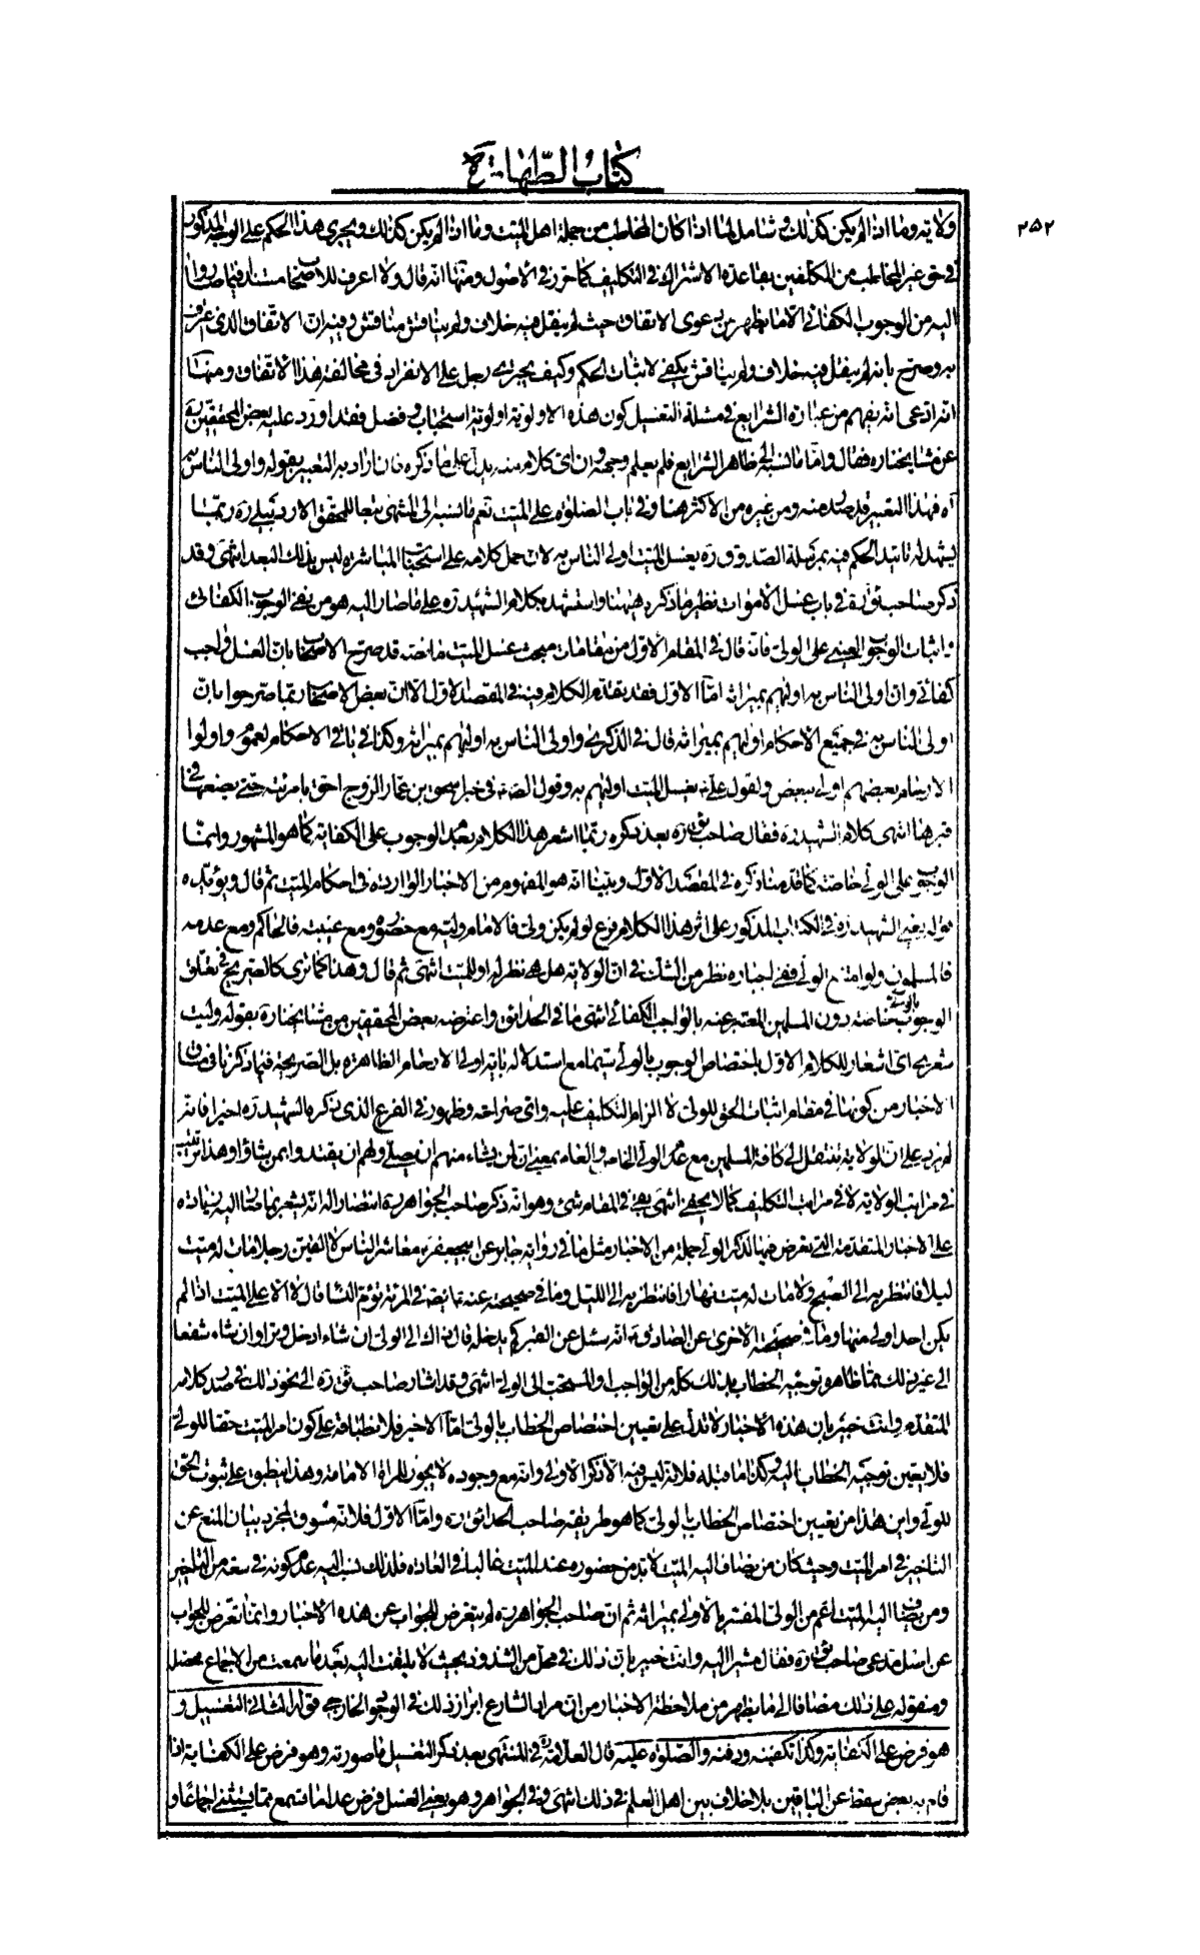 كتاب الطهارة
٢٥٢
ولايته وما اذا لم يكن كذلك وشامل لما اذا كان المخاطب من جملة اهل الميت وما اذا لم يكن كذلك ويجرى هذا الحكم على الوجه المذكور
فى حق غير المخاطب من المكلفين بقاعدة الاشتراك فى التكليف كما حرر فى الاصول ومنها انه قال ولا اعرف للاصحاب مستندا فيما صاروا
اليه من الوجوب الكفائى الا ما يظهر من دعوى الاتفاق حيث لم ينقل فيه خلاف ولم يناقش مناقش وفيه ان الاتفاق الذى اعترف
به وصرح بانه لم ينقل فيه خلاف ولم يناقش يكفى لاثبات الحكم وكيف يجترى رجل على الانفراد فى مخالفة هذا الاتفاق ومنها
انه ادعى انه يفهم من عبارة الشرايع فى مسئلة التغسيل كون هذه الاولوية اولوية استحباب وفضل فقد اورد عليه بعض المحققين
من مشايخنا ره فقال واما ما نسبه الى ظاهر الشرايع فلم يعلم وجهه وان اى كلام منه يدل على ما ذكره فان اراد به التعبير بقوله واولى الناس به
آه فهذا التعبير قد صدر منه ومن غيره من الاكثر هنا وفى باب الصلوة على الميت نعم ما نسبه الى المنتهى تبعا للمحقق الاردبيلى ره ربما
يشهد له تأييد الحكم فيه بمرسلة الصدوق ره يغسل الميت اولى الناس به لان حمل كلامه على استحباب المباشرة ليس بذلك البعد انتهى وقد
ذكر صاحب ئق ره فى باب غسل الأموات نظير ما ذكره هيهنا واستشهد بكلام الشهيد ره على ما صار اليه هو من نفى الوجوب الكفائى
واثبات الوجوب العينى على الولى فانه قال فى المقام الاول من مقامات مبحث غسل الميت ما نصه قد صرح الاصحاب بان الغسل واجب
كفائى وان اولى الناس به اوليهم بميراثه اما الاول فقد تقدم الكلام فيه فى المقصد الاول الا ان بعض الاصحاب ربما صرحوا بان
اولى الناس به فى جميع الاحكام اوليهم بميراثه قال فى الذكرى واولى الناس به اوليهم بميراثه وكذا فى باقى الاحكام لعموم واولوا
الارحام بعضهم اولى ببعض ولقول على ع يغسل الميت اوليهم به وقول الصادق ع فى خبر اسحق بن عمار الزوج احق بامرئته حتى يضعها فى
قبرها انتهى كلام الشهيد ره فقال صاحب ئق ره بعد ذكره ربما اشعر هذا الكلام بعدم الوجوب على الكفاية كما هو المشهور وانما
الوجوب على الولى خاصة كما قدمنا ذكره فى المقصد الاول وبينا انه هو المفهوم من الاخبار الواردة فى احكام الميت ثم قال ويؤيده
قوله يعنى الشهيد ره فى الكتاب المذكور على اثر هذا الكلام فرع لو لم يكن ولى فالامام وليه مع حضوره ومع غيبته فالحاكم ومع عدمه
فالمسلمون ولو امتنع الولى ففى اجباره نظر من الشك فى ان الولاية هل هى نظر له او للميت انتهى ثم قال وهذا كما ترى كالصريح فى تعلق
الوجوب بالولى خاصة دون المسلمين المعتبر عنه بالواجب الكفائى انتهى ما فى الحدائق واعترضه بعض المحققين من مشايخنا ره بقوله وليت
شعرى اى اشعار للكلام الاول باختصاص الوجوب بالولى سيما مع استدلاله باية اولى الارحام الظاهرة بل الصريحة فيما ذكرنا وفاق
الاخبار من كونها فى مقام اثبات الحق للولى لا الزام التكليف عليه واى صراحة وظهور فى الفرع الذى ذكره الشهيد ره اخيرا فانه
لم يزد على ان الولاية تنتقل الى كافة المسلمين مع عدم الولى الخاص والعام بمعنى ان لمن يشاء منهم ان يصلى ولهم ان يقتدوا بمن شاؤا وهذا ترتيب
فى مراتب الولاية لا فى مراتب التكليف كما لا يخفى انتهى بقى فى المقام شئ وهو انه ذكر صاحب الجواهر ره انتصارا له انه يشعر بما مال اليه زيادة
على الاخبار المتقدمة التى تعرض فيها لذكر الولى جملة من الاخبار مثل ما فى رواية جابر عن ابيجعفر ع معاشر الناس لا الفين رجلا مات له ميت
ليلا فانتظر به الى الصبح ولا مات له ميت نهارا فانتظر به الى الليل وما فى صحيحة عنه ع ايضا فى المرئة تؤم النساء قال لا الا على الميت اذا لم
يكن احد اولى منها وما فى صحيحته الأخرى عن الصادق ع انه سئل عن القبر كم يدخله قال ذاك الى الولى ان شاء ادخل وترا وان شاء شفعا
الى غير ذلك مما ظاهره توجيه الخطاب بذلك كله من الواجب او المستحب الى الولى انتهى وقد اشار صاحب ئق ره الى نحو ذلك فى صدر كلامه
المتقدم وانت خبير بان هذه الاخبار لا تدل على تعيين اختصاص الخطاب بالولى اما الاخير فلانطباقه على كون امر الميت حقا للولى
فلا يعين توجيه الخطاب اليه وكذا ما قبله فلانه ليس فيه الا ذكر الاولى وانه مع وجوده لا يجوز للمراة الامامة وهذا ينطبق على ثبوت الحق
للولى واين هذا من تعيين اختصاص الخطاب بالولى كما هو طريقة صاحب الحدائق ره واما الاول فلانه مسوق لمجرد بيان المنع عن
التاخير فى امر الميت وحيث كان من يضاف اليه الميت لا بد من حضوره عند الميت غالبا فى العادة فلذلك نسب اليه عدم كونه فى سعة من التاخير
ومن يضاف اليه الميت اعم من الولى المفسر بالاولى بميراثه ثم ان صاحب الجواهر ره لم يتعرض للجواب عن هذه الاخبار وانما تعرض للجواب
عن اصل مدعى صاحب ئق ره فقال مشيرا اليه وانت خبير بان ذلك فى محل من الشذوذ بحيث لا يلتفت اليه بعد ما سمعت من الاجماع محصله
ومنقوله على ذلك مضافا الى ما يظهر من ملاحظة الاخبار من ان مراد الشارع ابراز ذلك فى الوجود الخارجى قوله الثانى التغسيل و
هو فرض على الكفاية وكذا تكفينه ودفنه والصلوة عليه قال العلامة ره فى المنتهى بعد ذكر التغسيل ما صورته وهو فرض على الكفاية اذا
قام به بعض سقط عن الباقين بلا خلاف بين اهل العلم فى ذلك انتهى وفى الجواهر وهو يعنى الغسل فرض عدا ما تسمع مما يستثنى اجماعا و